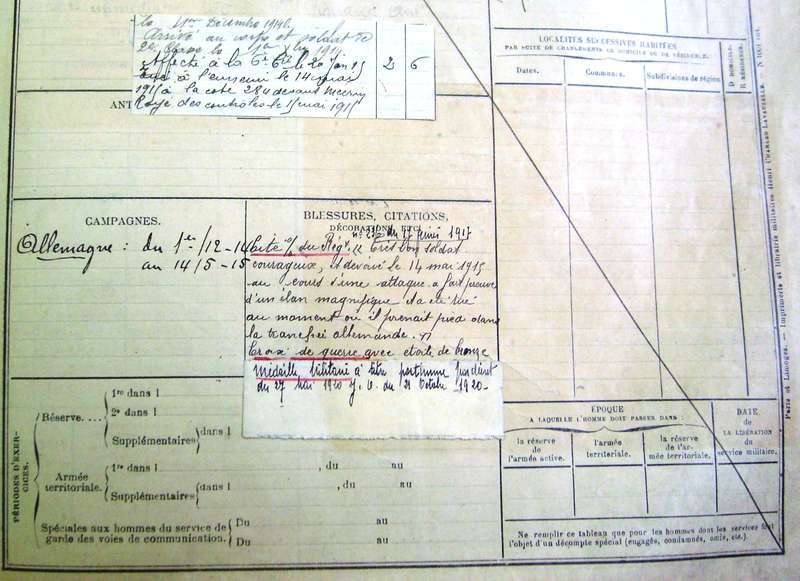 le 1er Décembre 1914.
Arrivé au corps et soldat de
2e classe le 1er Xbre 1914.
Affecté à la 6e Cie le 20 Jan 15 2 6
Tué à l'ennemi le 14 mai
1915 à la cote 280
Rayé des contrôles le 15 mai 1915
ANT
CAMPAGNES.
Allemagne : du 1er/12-14
au 14/5-15
BLESSURES, CITATIONS,
DÉCORATIONS, ETC.
du 17 février 1917
Cité o/ du Régt. « très bon soldat
courageux, et dévoué le 14 mai 1915
au cours d'une attaque a fait preuve
d'un élan magnifique et a été tué
au moment où il prenait pied dans
la tranchée allemande. »
Croix de guerre avec étoile de bronze
Médaille Militaire à titre posthume
du 27 Mai 1920 J. O. du 21 Octobre 1920-
LOCALITÉS SUCCESSIVES HABITÉES
PAR SUITE DE CHANGEMENTS DE DOMICILE OU DE RÉSIDENCE.
Dates.
Communes.
Subdivisions de région
D DOMICILE.
R RÉSIDENCE.
PÉRIODES D'EXERCICES.
Réserve....
1re dans l
2e dans l
Supplémentaires dans l
Armée
territoriale.
1re dans l , du au
Supplémentaires dans l , du au
Spéciales aux hommes du service de
garde des voies de communication.
Du au
Du au
ÉPOQUE
A LAQUELLE L'HOMME DOIT PASSER DANS :
la réserve
de
l'armée active.
l'armée
territoriale.
la réserve
de l'ar-
mée territoriale.
DATE
de
LA LIBÉRATION
du
service militaire.
Ne remplir ce tableau que pour les hommes dont les services font
l'objet d'un décompte spécial (engagés, condamnés, omis, etc.)
Paris et Limoges. — Imprimerie et librairie militaires Henri CHARLES-LAVAUZELLE.